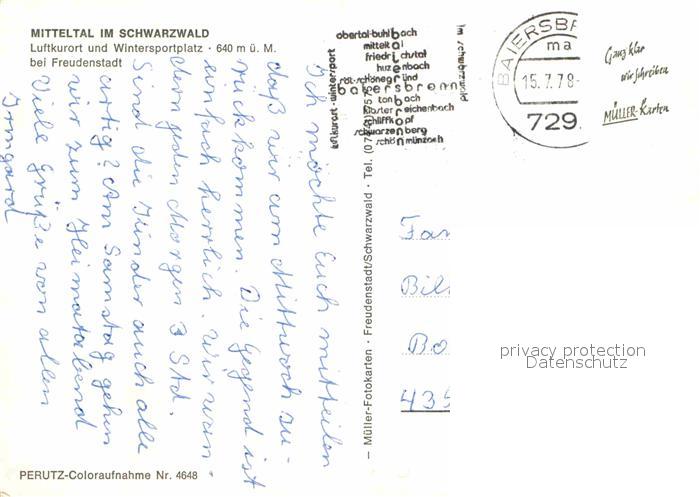 MITTELTAL IM SCHWARZWALD
Luftkurort und Wintersportplatz · 640 m ü. M.
bei Freudenstadt
Ich möchte Euch mitteilen
daß wir am Mittwoch zu-
rückkommen. Die Gegend ist
einfach herrlich. Wir wan-
dern jeden Morgen 3 Std.
Sind die Kinder auch alle
artig? Am Samstag gehen
wir zum Heimatabend
Viele Grüße von allen
Irmgard
PERUTZ-Coloraufnahme Nr. 4648
— Müller-Fotokarten · Freudenstadt/Schwarzwald · Tel.
luftkurort · wintersport
obertal·buhlbach
mitteltal
friedrichstal
huzenbach
röt-schönegründ
baiersbronn
tonbach
klosterreichenbach
schliffkopf
schwarzenberg
schönmünzach
im schwarzwald
BAIERSBR
ma
15.7.78-
729
Ganz klar
wir schreiben
MÜLLER-Karten
Fam
Bil
Bo
435
privacy protection
Datenschutz